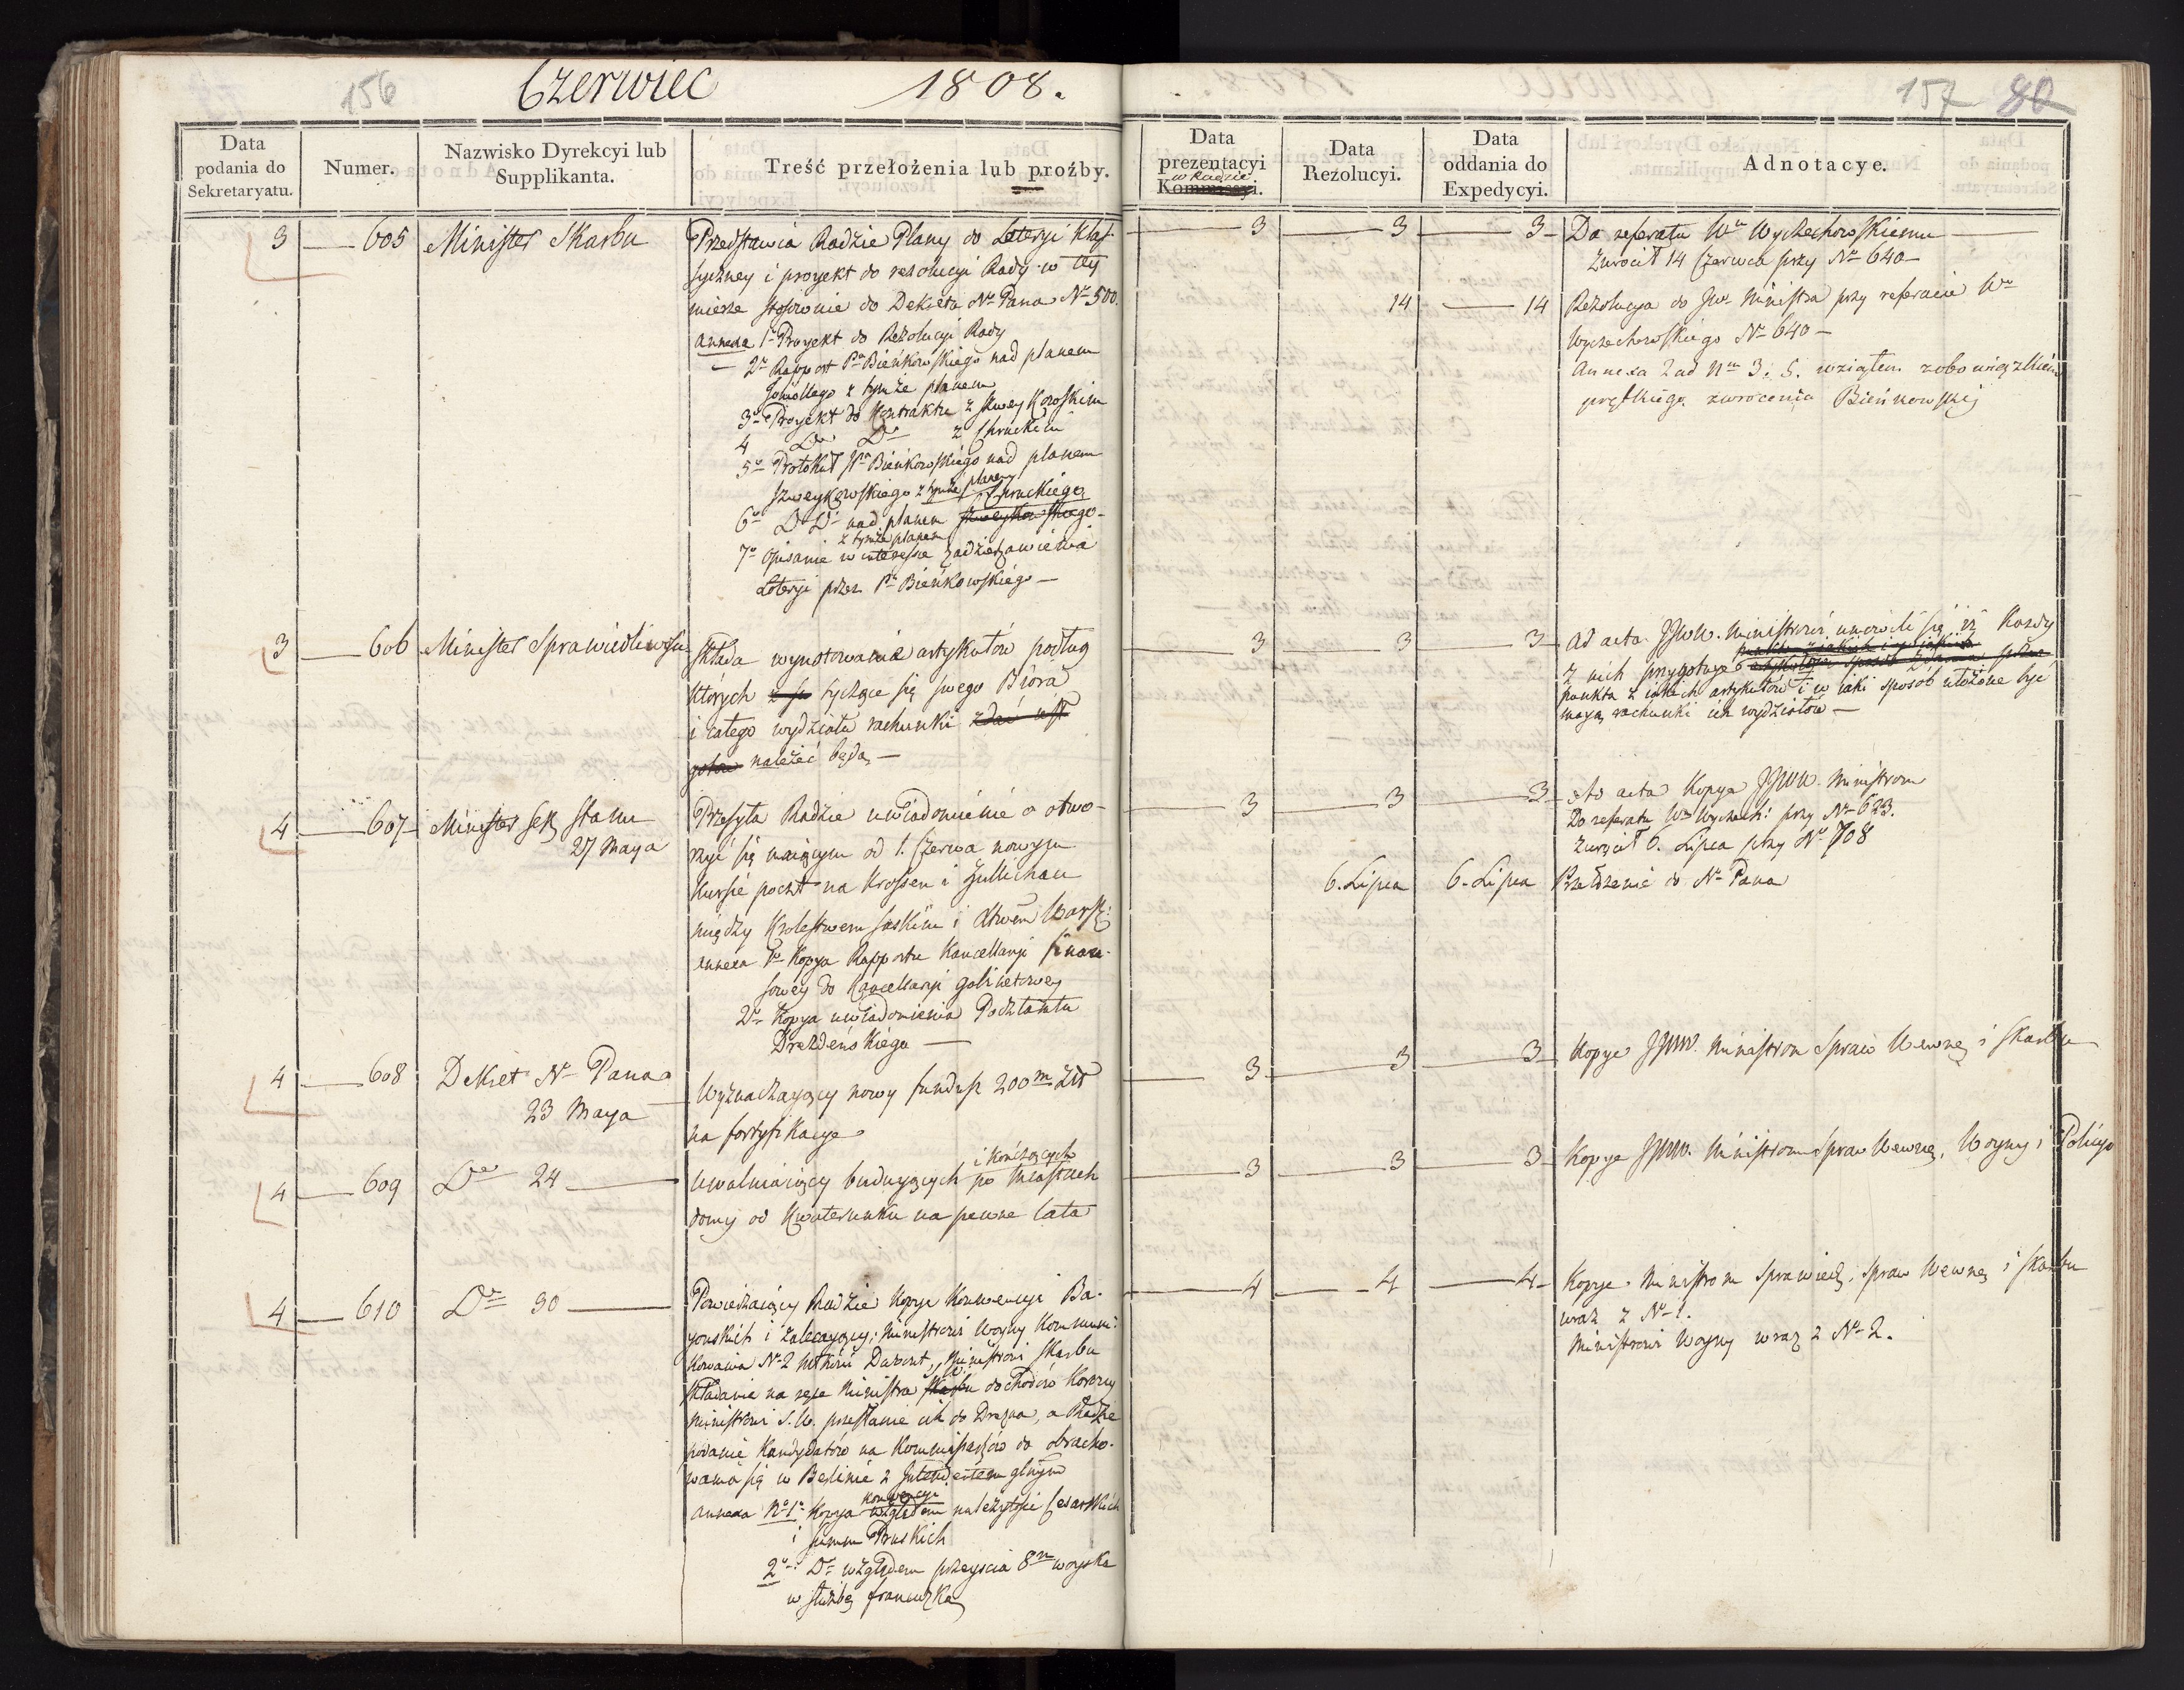 156
Czerwiec 1808.
Data podania do Sekretaryatu.
Numer.
Nazwisko Dyrekcyi lub Supplikanta.
Treść przełożenia lub proźby.
3 605 Minister Skarbu
Przedstawia Radzie Plany do Loteryi Klas-
syczney i proyekt do rezolucyi Rady w tey
mierze stosownie do Dekretu Nº Pana Nº 500.
annexa 1º Proyekt do Rezolucyi Rady
2º Rapport Pª Bieńkowskiego nad planem
z tymże planem
3º Proyekt do Kontraktu z
4 Dº Dº z
5º Protokuł Pª Bieńkowskiego nad planem
Szweykowskiego z tymże planem
6º Dº Dº nad planem
z tymże planem
7º Opisanie w interesie zadzierżawienia
Loteryi przez Pª Bieńkowskiego —
3 606 Minister Sprawiedliwości
Składa wynotowanie artykułów podług
których tyczące się swego Bióra
i całego wydziału rachunki
należeć będą —
4 607 Minister Sek Stanu
27 Maya
Przesyła Radzie uwiadomienie o otwo-
rzyć się maiącym od 1. Czerwca nowym
kursie poczt na Krossen i Züllichau
między Krolestwem Saskim i Xtwem Warsz:
annexa 1º Kopya Rapportu Kancellaryi finan-
sowey do Kancellaryi gabinetowey
2º Kopya uwiadomienia Pocztamtu
Drezdeńskiego —
4 608 Dekret Nº Pana
23 Maya
Wyznaczaiący nowy fundusz 200m Złł
na fortyfikacye
4 609 Dº 24
i kończących
Uwalniaiący buduiących po miastach
domy od kwaterunku na pewne lata
4 610 Dº 30
Powierzaiący Radzie Kopye Konwencyi Ba-
yońskich i zalecaiący; Ministrowi Woyny kommuni-
kowania Nº 2 Davout, Ministrowi Skarbu
składanie na ręce Ministra dochodów Korony
Ministrowi S.W. przesłanie ich do Drezna, a Radzie
podanie Kandydatów na Kommissarzów do obracho-
wania się w Berlinie z Intendentem głnym
Konwencyi
annexa Nº 1º Kopya względem należytości Cesarskich
i summ Pruskich
2º Dº względem przeyscia 8m woyska
w służbę francuzką
157 80
Data prezentacyi w Radzie Kommissyi.
Data Rezolucyi.
Data oddania do Expedycyi.
Adnotacye.
3 3 3
Do referatu Wº Wyczechowskiemu
Zwrócił 14 Czerwca przy Nº 640 —
14 14
Rezolucya do JW. Ministra przy referacie Wº
Wyczechowskiego Nº 640 —
Annexa 2 ad Nm 3: 5. wziąłem z obowiązkiem
prętkiego zwrócenia Bieńkowski
3 3 3
Ad acta. JJWW. Ministrowie umówili się iż każdy
z nich przygotuie
punkta z iakich artykułów i w iaki sposób ułożone być
maią rachunki ich wydziałów —
3 3 3
Ad acta Kopya JJWW. Ministrom
Do referatu Wº Wyczech: przy Nº 623.
Zwrócił 6. Lipca przy Nº 708
6. Lipca 6. Lipca
Przełożenie do Nº Pana
3 3 3
Kopye JJWW. Ministrom Spraw Wewnę i Skarbu
3 3 3
Kopye JJWW. Ministrom Spraw Wewnę, Woyny i Policyi
4 4 4
Kopye Ministrom Sprawiedl, Spraw Wewnę i Skarbu
wraz z Nº 1.
Ministrowi Woyny wraz z Nº 2.